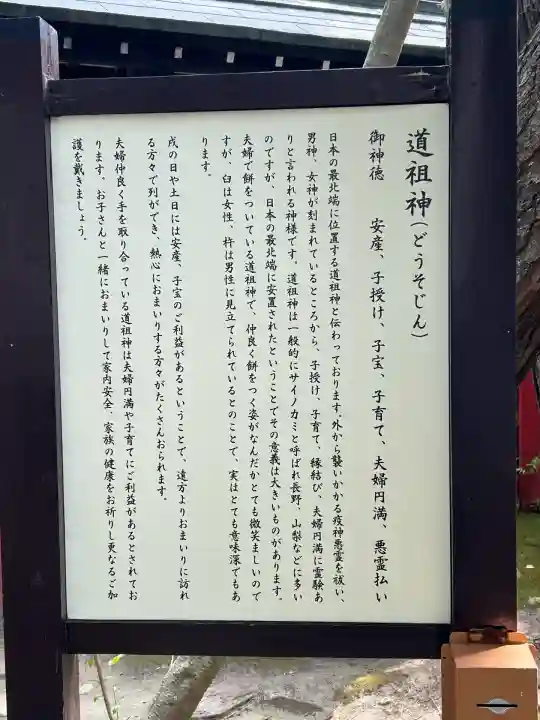 道祖神(どうそじん)
御神徳　安産、子授け、子宝、子育て、夫婦円満、悪霊払い
日本の最北端に位置する道祖神と伝わっております。外から襲いかかる疫神悪霊を祓い、
男神、女神が刻まれているところから、子授け、子育て、縁結び、夫婦円満に霊験あ
りと言われる神様です。道祖神は一般的にサイノカミと呼ばれ長野、山梨などに多い
のですが、日本の最北端に安置されたということでその意義は大きいものがあります。
夫婦で餅をついている道祖神で、仲良く餅をつく姿がなんだかとても微笑ましいので
すが、臼は女性、杵は男性に見立てられているとのことで、実はとても意味深でもあ
ります。
戌の日や土日には安産、子宝のご利益があるということで、遠方よりおまいりに訪れ
る方々で列ができ、熱心におまいりする方々がたくさんおられます。
夫婦仲良く手を取り合っている道祖神は夫婦円満や子育てにご利益があるとされてお
ります。お子さんと一緒におまいりして家内安全、家族の健康をお祈りし更なるご加
護を戴きましょう。